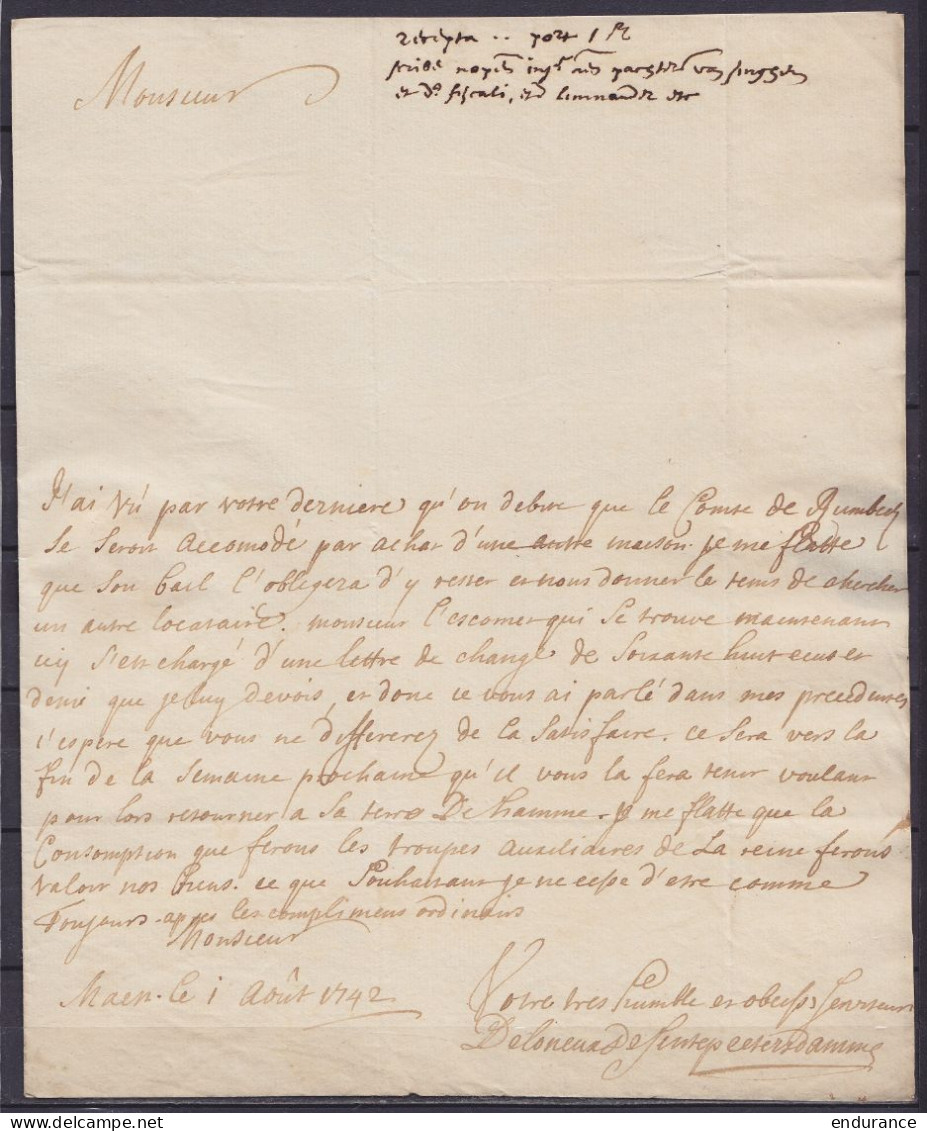 recepta .. port 1
Monsieur
et d° fiscali, et
J'ai vû par votre derniere qu'on debite que le Comte de Rumbeck
se seroit accomodé par achat d'une autre maison. je me flatte
que son bail l'obligera d'y rester et nous donner le tems de chercher
un autre locataire. monsieur l'escornet qui se trouve maintenant
icy s'est chargé d'une lettre de change de soixante huit ecus et
demi que je luy devois, et donc je vous ai parlé dans mes precedentes
j'espere que vous ne differerez de la satisfaire. ce sera vers la
fin de la semaine prochaine qu'il vous la fera tenir voulant
pour lors retourner a sa terre De hamme. je me flatte que la
Consomption que feront les troupes auxiliaires de La reine feront
valoir nos biens. ce que souhaittant je ne cesse d'etre comme
Toujours apres les complimens ordinairs
Monsieur
Maen. le 1 Août 1742
Votre tres humble et obeiss: serviteur